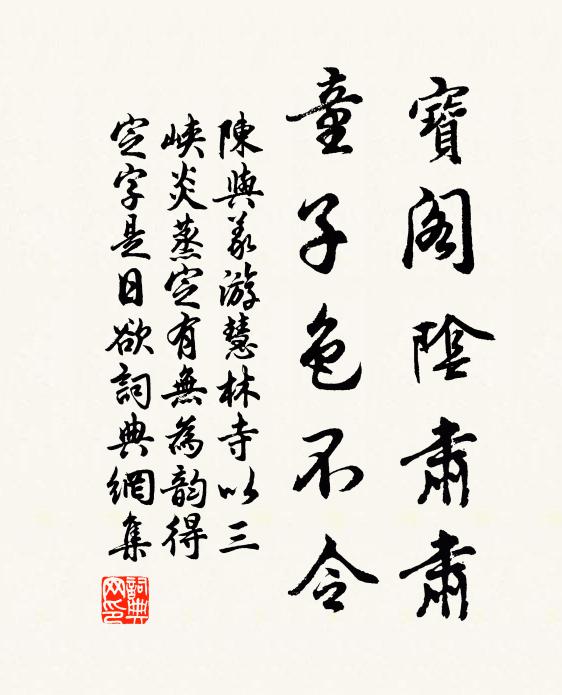 寶閣陰肅肅
童子色不令
陳與義游慧林寺以三
峽炎蒸定有無為韵得
定字是日欲詞典網集
詞典网印